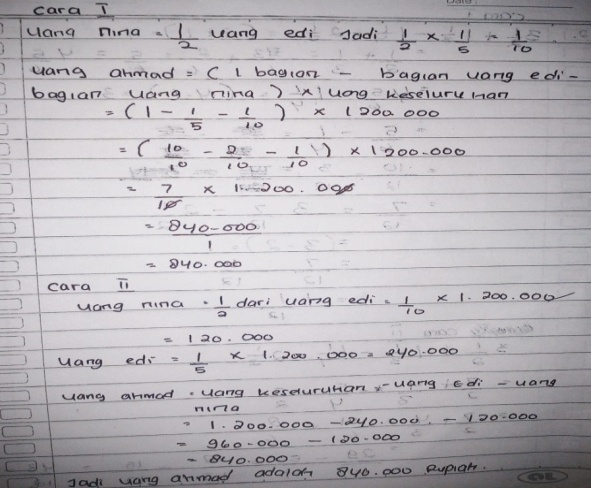 cara I
Uang nina = 1/2 uang edi Jadi 1/2 × 1/5 = 1/10
uang ahmad = ( 1 bagian - bagian uang edi -
bagian uang nina ) × uang keseluruhan
= ( 1 - 1/5 - 1/10 ) × 1200.000
= ( 10/10 - 2/10 - 1/10 ) × 1200.000
= 7/10 × 1.200.000
= 840.000/1
= 840.000
cara II
uang nina = 1/2 dari uang edi = 1/10 × 1.200.000
= 120.000
Uang edi = 1/5 × 1.200.000 = 240.000
uang ahmad = uang keseluruhan - uang edi - uang
nina
= 1.200.000 - 240.000 - 120.000
= 960.000 - 120.000
= 840.000
Jadi uang ahmad adalah 840.000 rupiah.